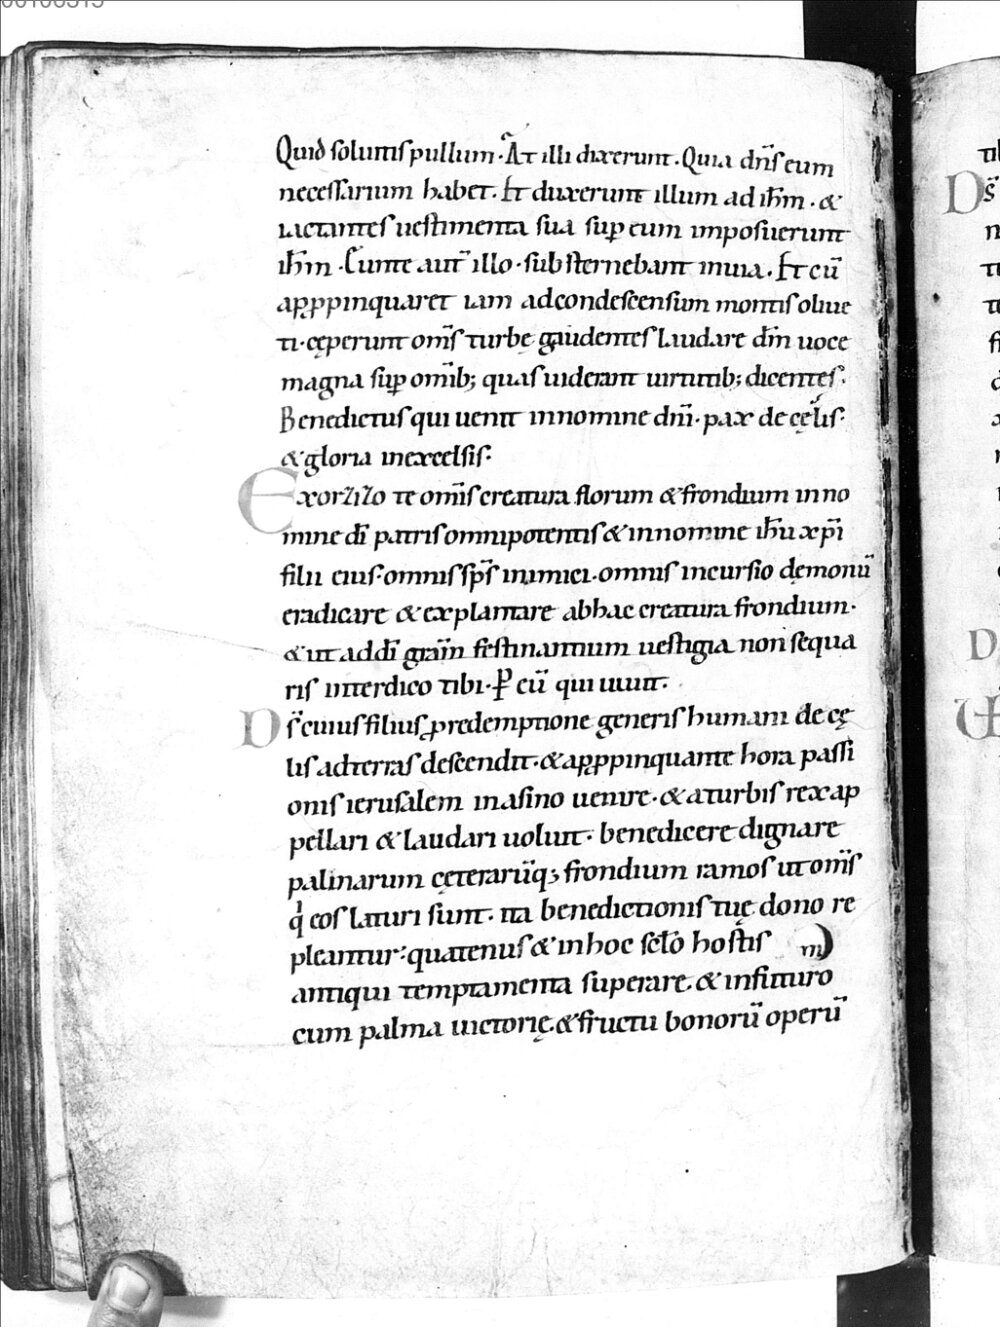 Quid soluitis pullum. At illi dixerunt. Quia dn̄s eum
necessarium habet. Et duxerunt illum ad ih̄m. &
iactantes uestimenta sua sup̱ eum imposuerunt
ih̄m. Eunte aut̄ illo. substernebant inuia. Et cū
ap̱p̱pinquaret iam ad condescensum montis oliue
ti. cęperunt om̄s turbę gaudentes laudare dm̄ uoce
magna sup̱ omīb; quas uiderant uirtutib; dicentes.
Benedictus qui uenit innomine dn̄i. pax de cęlis.
& gloria inexcelsis.
Exorzizo te om̄is creatura florum & frondium in no
mine dī patris omnipotentis & innomine ih̄u xp̄i
filii eius. omnis sp̄s inimici. omnis incursio demonū
eradicare & explantare abhac creatura frondium.
& ut ad dī gram̄ festinantium uestigia non sequa
ris interdico tibi. P̱ eū qui uiuit.
Ds̄ cuius filius p̱ redemptione generis humani de cę
lis adterras descendit. & ap̱p̱pinquante hora passi
onis ierusalem in asino uenire. & aturbis rex ap
pellari & laudari uoluit. benedicere dignare
palmarum cęterarūq; frondium ramos ut om̄s
q̇ eos laturi sunt. ita benedictionis tuę dono re
pleantur. quatenus & in hoc sc̄lo hostis
antiqui temptamenta superare. & infuturo
cum palma uictorię. & fructu bonorū operū